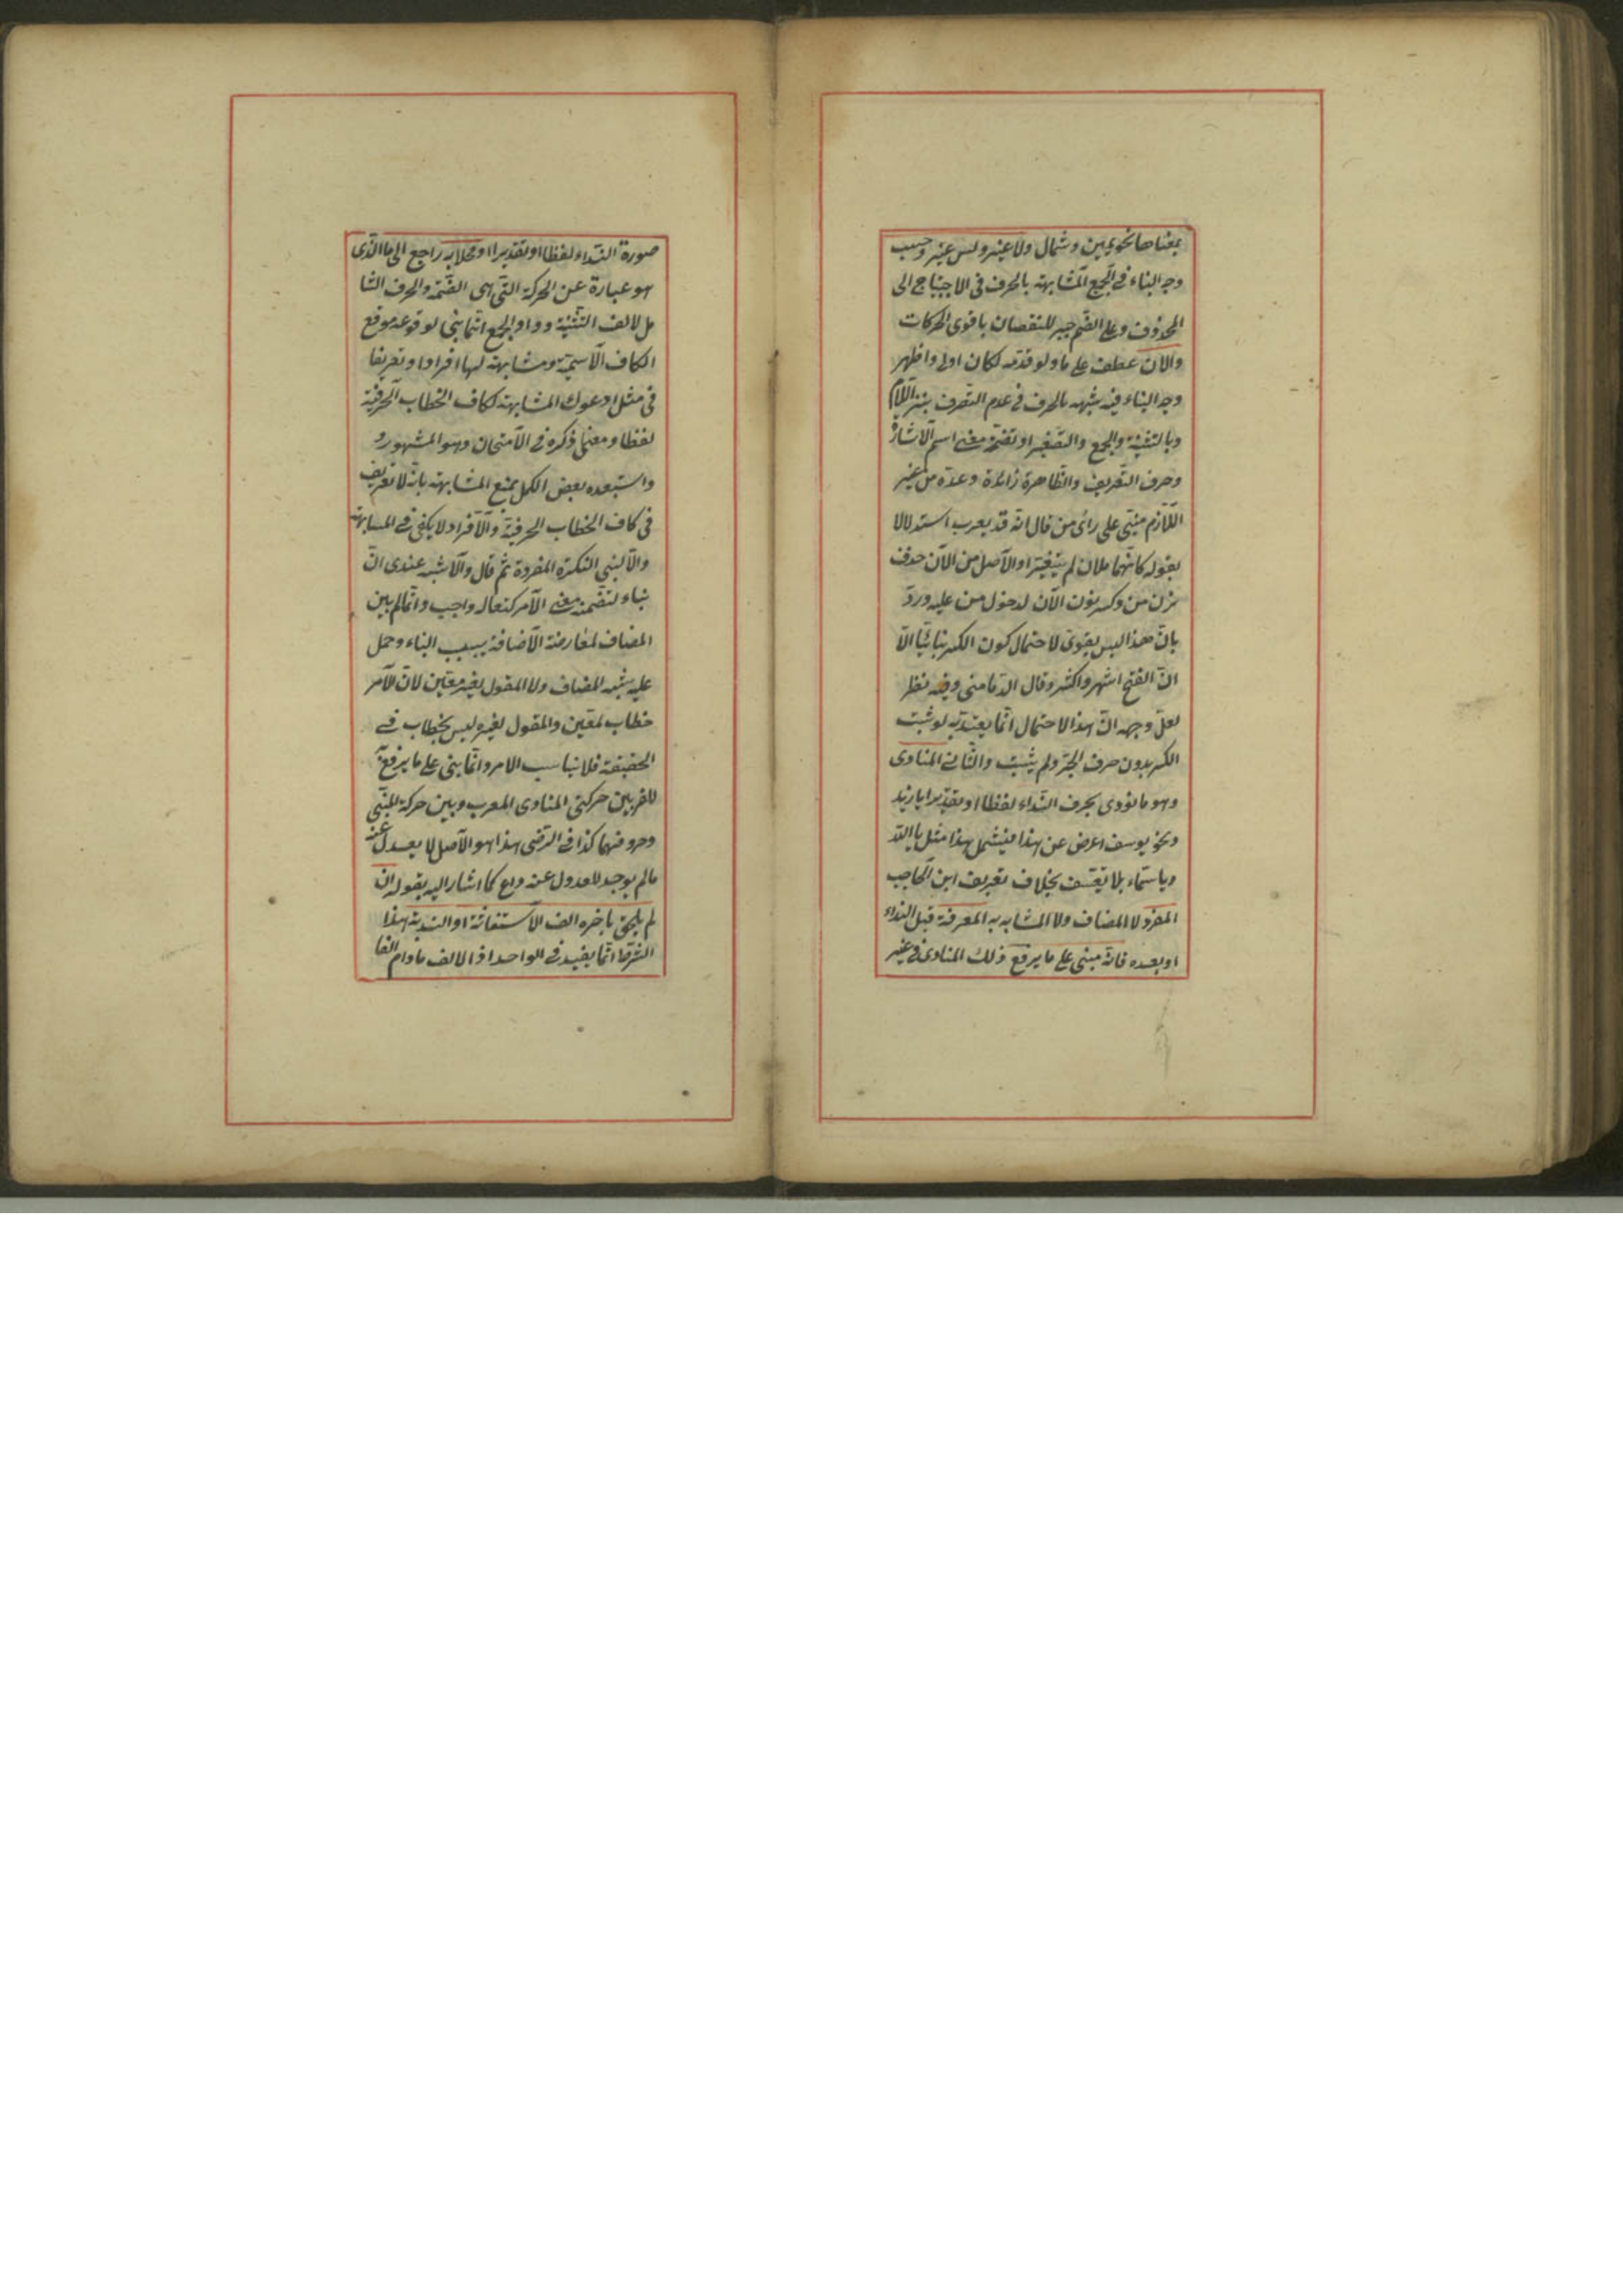 بمعناها نحو يمين وشمال ولا غير وليس غير وحسب
وجه البناء في الجميع المشابهة بالحرف في الاحتياج الى
المحذوف وعلى الضم جبر للنقصان باقوى الحركات
والان عطف على ما ولو قدمه لكان اولى واظهر
وجه البناء فيه شبهه بالحرف في عدم التصرف بنزع اللام
وبالتثنية والجمع والتصغير او تضمنه معنى اسم الاشارة
وحرف التعريف والظاهرة زائدة وعدّه من غير
اللازم مبني على رأى من قال انه قد يعرب استدلالا
بقوله كانهما ملان لم يتغيرا والاصل من الآن حذف
نون من وكسر نون الآن لدخول من عليه وردّ
بان هذا ليس بقوى لاحتمال كون الكسر بنائيا الا
ان الفتح اشهر واكثر وقال الدمامينى وفيه نظر
لعل وجهه ان هذا الاحتمال انما يعتد به لو ثبت
الكسر بدون حرف الجر ولم يثبت والثاني المنادى
وهو ما نودى بحرف النداء لفظا او تقديرا يا زيد
ونحو يوسف اعرض عن هذا فيشمل هذا مثل يا الله
ويا سماء بلا تعسف بخلاف تعريف ابن الحاجب
المفرد لا المضاف ولا المشابه به المعرفة قبل النداء
او بعده فانه مبنى على ما يرفع ذلك المنادى في غير
صورة النداء لفظا او تقديرا او محلا به راجع الى ما الذى
هو عبارة عن الحركة التى هى الضمة والحرف الشا
مل لالف التثنية وواو الجمع انما بنى لوقوعه موقع
الكاف الاسمية ومشابهته لها افرادا وتعريفا
فى مثل ادعوك المشابهة لكاف الخطاب الحرفية
لفظا ومعنى ذكره في الامتحان وهو المشهور و
واستبعده بعض الكمل بمنع المشابهة بانه لا تعريف
فى كاف الخطاب الحرفية والافراد لا يكفى في المشابهة
والا لبنى النكرة المفردة ثم قال والاشبه عندى انّ
بناءه لتضمنه معنى الامر كتعال واجب وانما لم يبن
المضاف لمعارضة الاضافة بسبب البناء وحمل
عليه شبه المضاف ولا المقول لغير معين لان الامر
خطاب لمعين والمقول لغيره ليس بخطاب في
الحقيقة فلا يناسب الامر وانما بنى على ما يرفع به
للفرق بين حركتى المنادى المعرب وبين حركة المبنى
وحروفهما كذا في الرضى هذا هو الاصل لا يعدل عنه
ما لم يوجد للعدول عنه داع كما اشار اليه بقوله ان
لم يلحق باخره الف الاستغاثة او الندبة هذا
الشرط انما يفيد في الواحد اذ الالف ما دام الفا